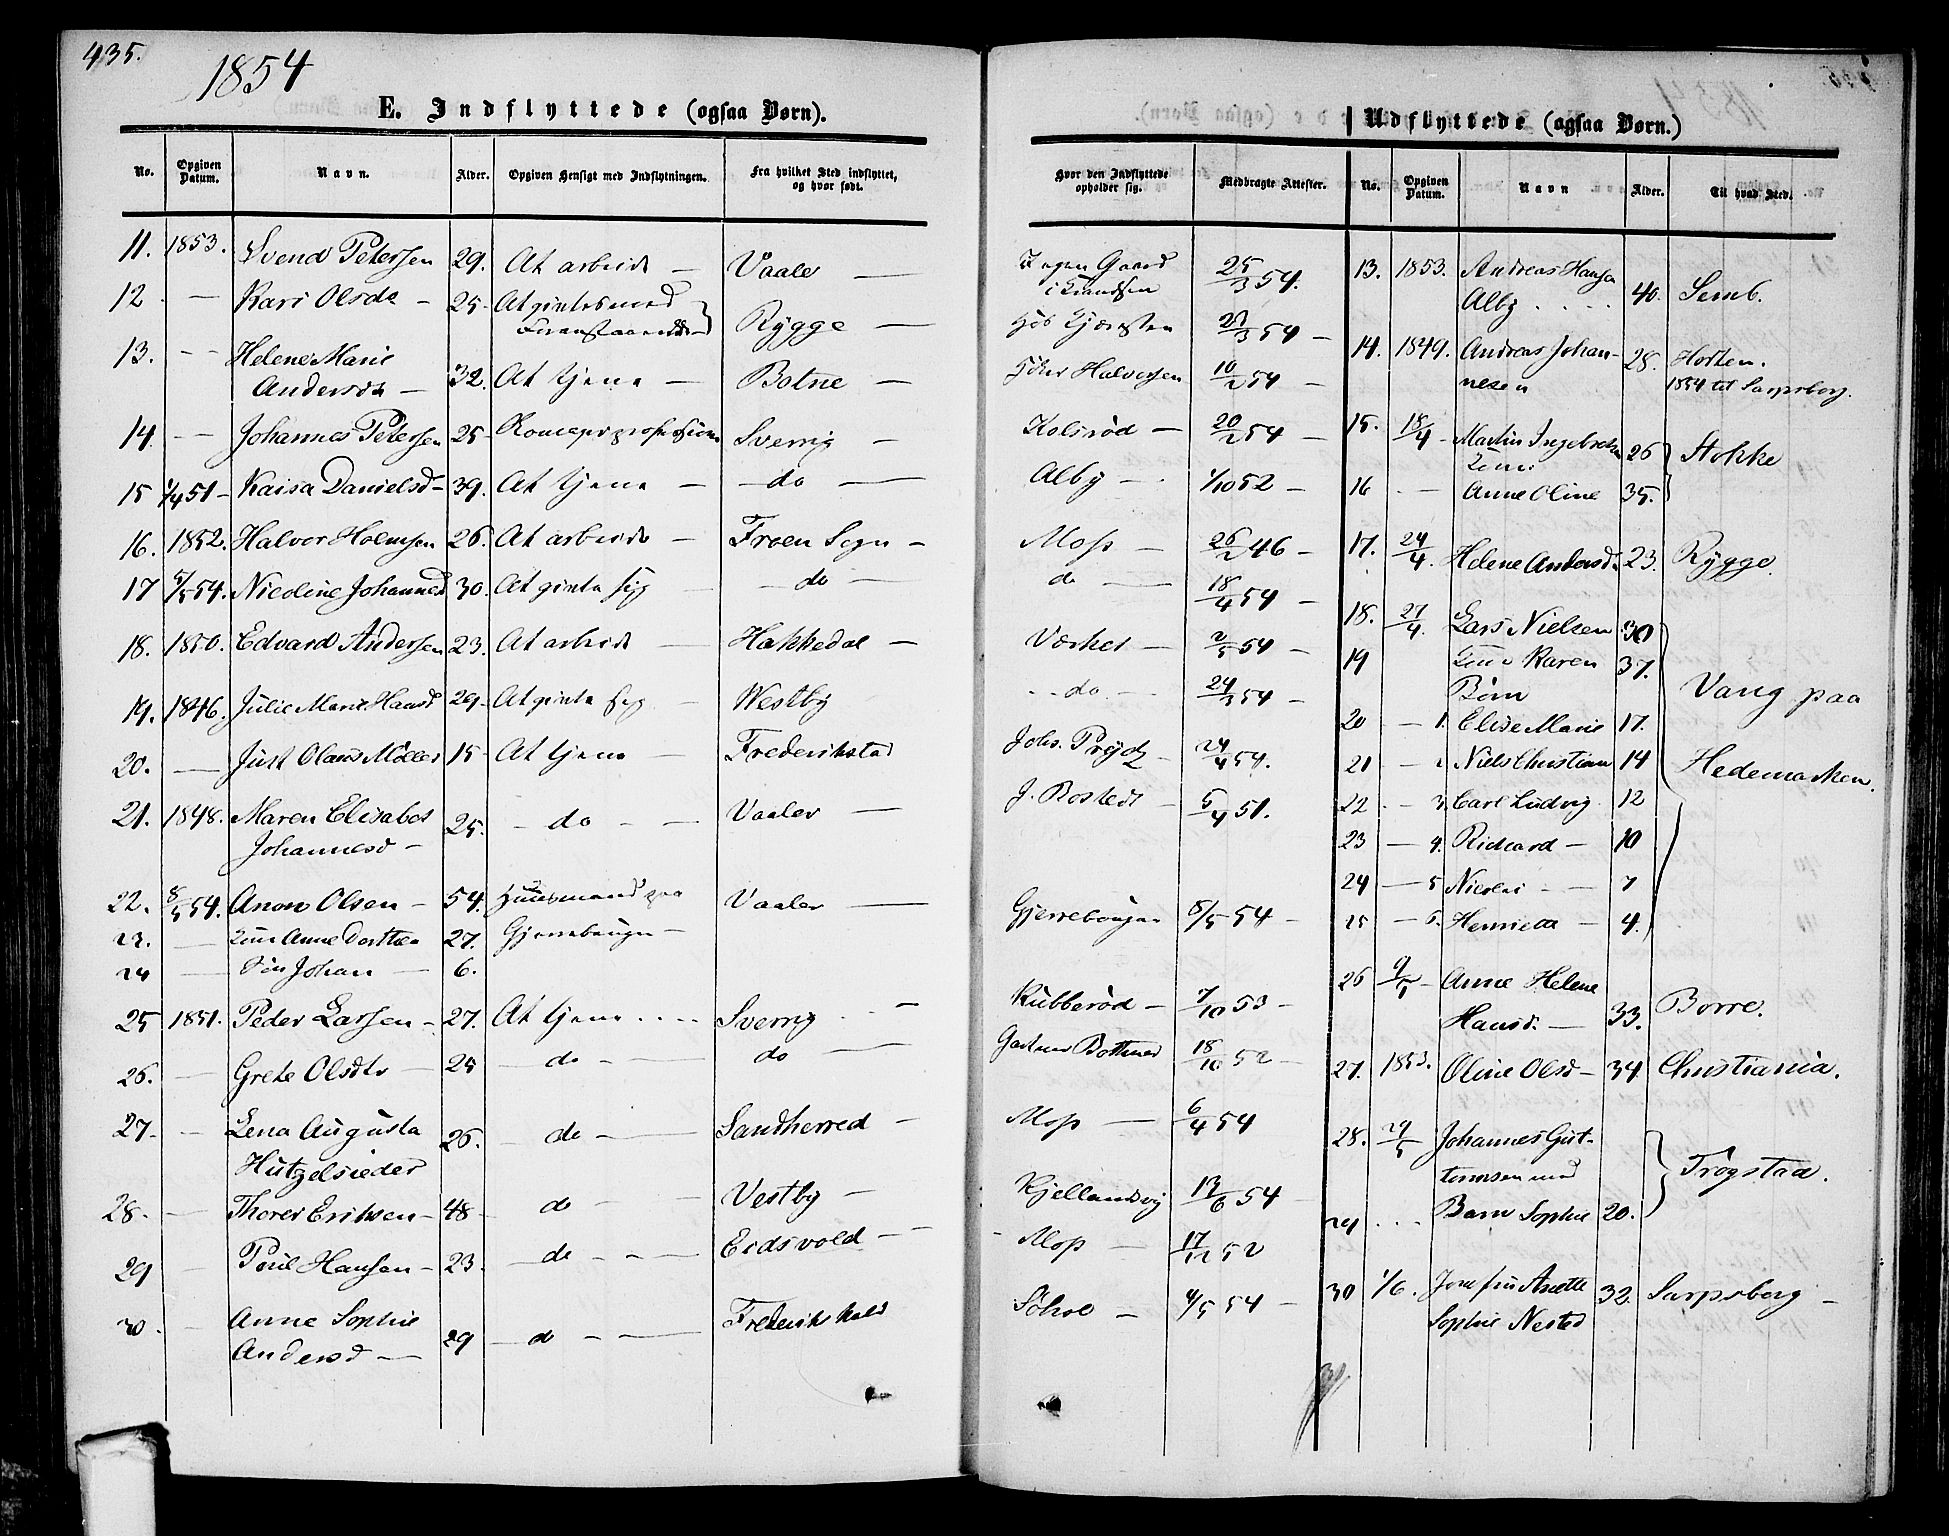 435.
1854
E. Indflyttede (ogsaa Børn).
No. Opgiven Datum. Navn. Alder. Opgiven Hensigt med Indflytningen. Fra hvilket Sted indflyttet, og hvor født.
11. 1853. Svend Petersen 29. At arbeide — Vaaler —
12 — Kari Olsdr — 25 At giftes med
Rygge —
13. - - Helene Marie
Andersdr — 32. At tjene — Botne —
14. - - Johannes Petersen 25 Sverrig —
15 1/4 51 - Kaisa Danielsd - 39. At tjene — do —
16. 1852. Halvor Holmsen 26. At arbeide — Froen Sogn -
17 5/5 54. Nicoline Johannesd 30. At gifte sig — do —
18. 1850. Edvard Andersen 23. At arbeide — Hakkedal —
19. 1846. Julie Marie Hansd 29 - At gifte sig - Westby
20. — Just Olaus Møller 15 - At tjene — Frederikstad
21. 1848. Maren Elisabet
Johannesd — 25. - do - — Vaaler —
22. 8/5 54. Anon Olsen - 54. Huusmand paa Vaaler —
23. — Kone Anne Dorthea 27. Gjerrebaugen -
24 — Søn Johan — 6.
25 1851. Peder Larsen - 27. At tjene . . . . Sverrig . . —
26. — Grete Olsdtr — 25 - do - — do —
27. — Lena Augusta
Hutzelsieder 26. - do - — Sandherred —
28. — Thorer Eriksen - 48 - do - — Vestby —
29 — Poul Hansen - 23. - do - - — Eidsvold - -
30. — Anne Sophie
Andersd — 29 — do - — Frederikshald
Udflyttede (ogsaa Børn.)
Hvor den Indflyttede opholder sig. Medbragte Attester. No. Opgiven Datum. Navn Alder. Til hvad Sted.
25/3 54. 13. 1853. Andreas Hansen
Alby . . . . 40. Semb.
27/3 54 —
14. 1849. Andreas Johan-
nesen 28. Horten.
1854 til Sarpsborg.
Halvorsen 10/2 54 -
Kolsrød — 20/2 54 — 15. 18/4 - Martin Ingebretsen 26 Stokke
Kone
Alby — . 1/10 52 — 16 - - Anne Oline 35.
Moss — 26/2 46 — 17. 24/4. Helene Andersd 23. Rygge.
do — 18/4 54 —
18. 27/4. Lars Nielsen 30
Værket — 2/5 54 — 19 Kone Karen 37.
Børn Vang paa
- - do. — 24/3 54 — 20 — 1. Elise Marie 17.
Johs. Prydz — 24/4 54. 21 — 2 Niels Christian 14 Hedemarken.
J. Rostedt — 5/4 51. 22 . — 3. Carl Ludvig. 12
23 — 4. Richard — 10
24 — 5 Nicolai - — 7
Gjerrebougen 8/5 54 — 25 — 6. Henriette — 4.
26 9/5 Anne Helene
Hansd. — 33. Borre.
Kubberød — 7/10 53 —
Gartner Bothner 18/10 52 — 27. 1853. Oline Olsd — 34 Christiania.
Moss — 6/4 54
28. 29/5 Johannes Gut-
tormsen med Trøgstad.
Kjellandsvig 13/6 54 —
29 . . . Barn Sophie 20.
- Moss — 17/12 52
Sohol — 4/5 54 — 30 1/6. Josefine Anette 32. Sarpsborg —
Sophie Nested